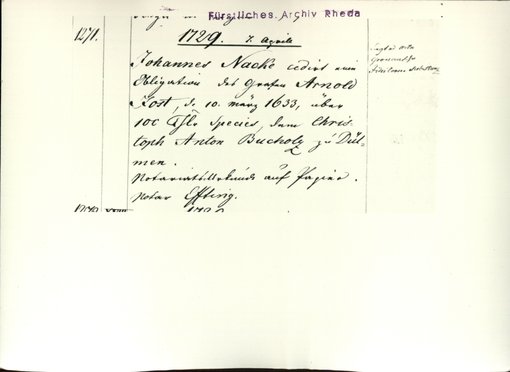 Fürstliches Archiv Rheda
1271.
1729. 7 Aprils
Johannes Nacke cedirt eine
Obligation des Grafen Arnold
Jost, d. 10. märz 1633, über
100 Thlr Species, dem Chris
toph Anton Bucholz zu Dül-
men.
Notariatsurkunde auf Papier.
Notar Effting.